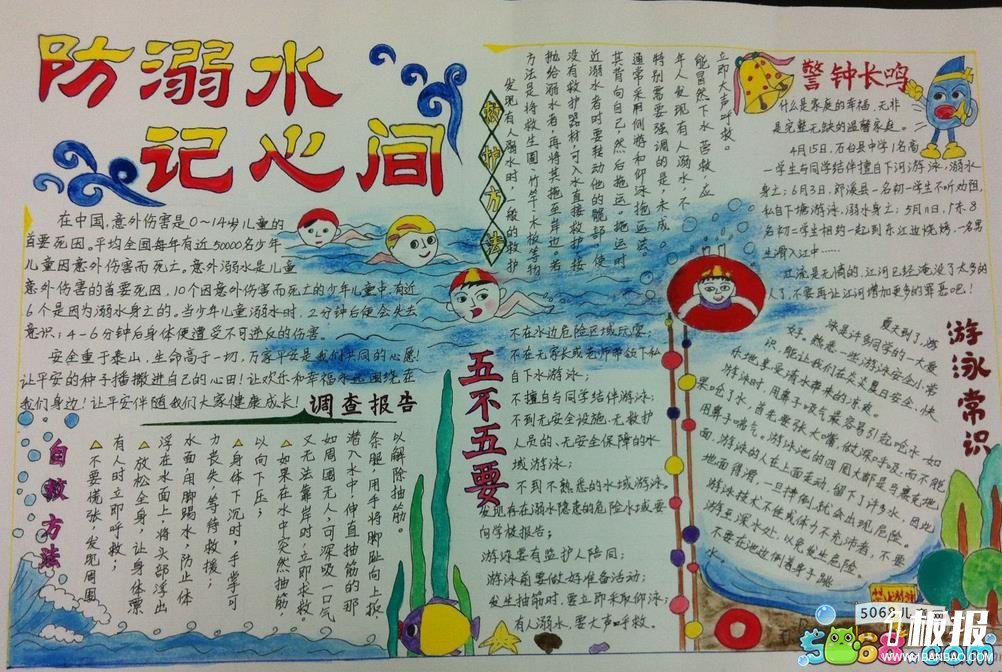 防溺水
记心间
在中国,意外伤害是0～14岁儿童的
首要死因。平均全国每年有近50000名少年
儿童因意外伤害而死亡。意外溺水是儿童
意外伤害的首要死因,10个因意外伤害而死亡的少年儿童中,有近
6个是因为溺水身亡的。当少年儿童溺水时,2分钟后便会失去
意识;4-6分钟后身体便遭受不可逆反的伤害。
安全重于泰山,生命高于一切,万家平安是我们共同的心愿!
让平安的种子播撒进自己的心田!让欢乐和幸福永远围绕在
我们身边!让平安伴随我们大家健康成长!
调查报告
自救方法
△不要慌张,发现周围
有人时立即呼救;
△放松全身,让身体漂
浮在水面上,将头部浮出
水面,用脚踢水,防止体
力丧失,等待救援;
△身体下沉时,手掌可
以向下压;
△如果在水中突然抽筋,
又无法靠岸时,立即求救。
如周围无人,可深吸一口气
潜入水中,伸直抽筋的那
条腿,用手将脚趾向上扳,
以解除抽筋。
救护方法
发现有人溺水时,一般的救护
方法是将救生圈、竹竿、木板等物
抛给溺水者,再将其拖至岸边。若
没有救护器材,可入水直接救护。接
近溺水者时要转动他的髋部,使
其背向自己,然后拖运。拖运时
通常采用侧游和仰泳拖运法。
特别需要强调的是:未成
年人发现有人溺水,不
能冒然下水营救,应
立即大声呼救。
警钟长鸣
什么是家庭的幸福,无非
是完整无缺的温馨家庭。
4月15日,石台县中学1名高
一学生与同学结伴擅自下河游泳,溺水
身亡;6月3日,郎溪县一名初一学生不听劝阻,
私自下塘游泳,溺水身亡;5月11日,广东,8
名初二学生相约一起到东江边烧烤,一名男
生滑入江中……
江流是无情的,江河已经淹没了太多的
人了,不要再让江河增加更多的罪恶吧!
五不五要
不在水边危险区域玩耍;
不在无家长或老师带领下私
自下水游泳;
不擅自与同学结伴游泳;
不到无安全设施、无救护
人员的、无安全保障的水
域游泳;
不到不熟悉的水域游泳。
发现存在溺水隐患的危险水域要
向学校报告;
游泳要有监护人陪同;
游泳前要做好准备活动;
发生抽筋时,要立即采取仰泳;
有人溺水,要大声呼救。
游泳常识
夏天到了,游
泳是许多同学的一大爱
好。熟悉一些游泳安全小常
识,能让我们在炎炎夏日安全、快
乐地享受清水带来的凉爽。
游泳时,用鼻子吸气最容易引起呛水,如
果呛了水,首先要张大嘴,做深呼吸,而不能
用鼻子喘气。游泳池的四周大都是马赛克地
面,游泳的人在上面走动,留下了许多水,因此
地面很滑,一旦摔倒,就会出现危险。
游泳技术不佳或体力不充沛者,不要
游至深水处,以免发生危险。
不要在池边倒着身子跳
水。
5068儿童
5068.com
板报
WWW.1BANBAO.COM